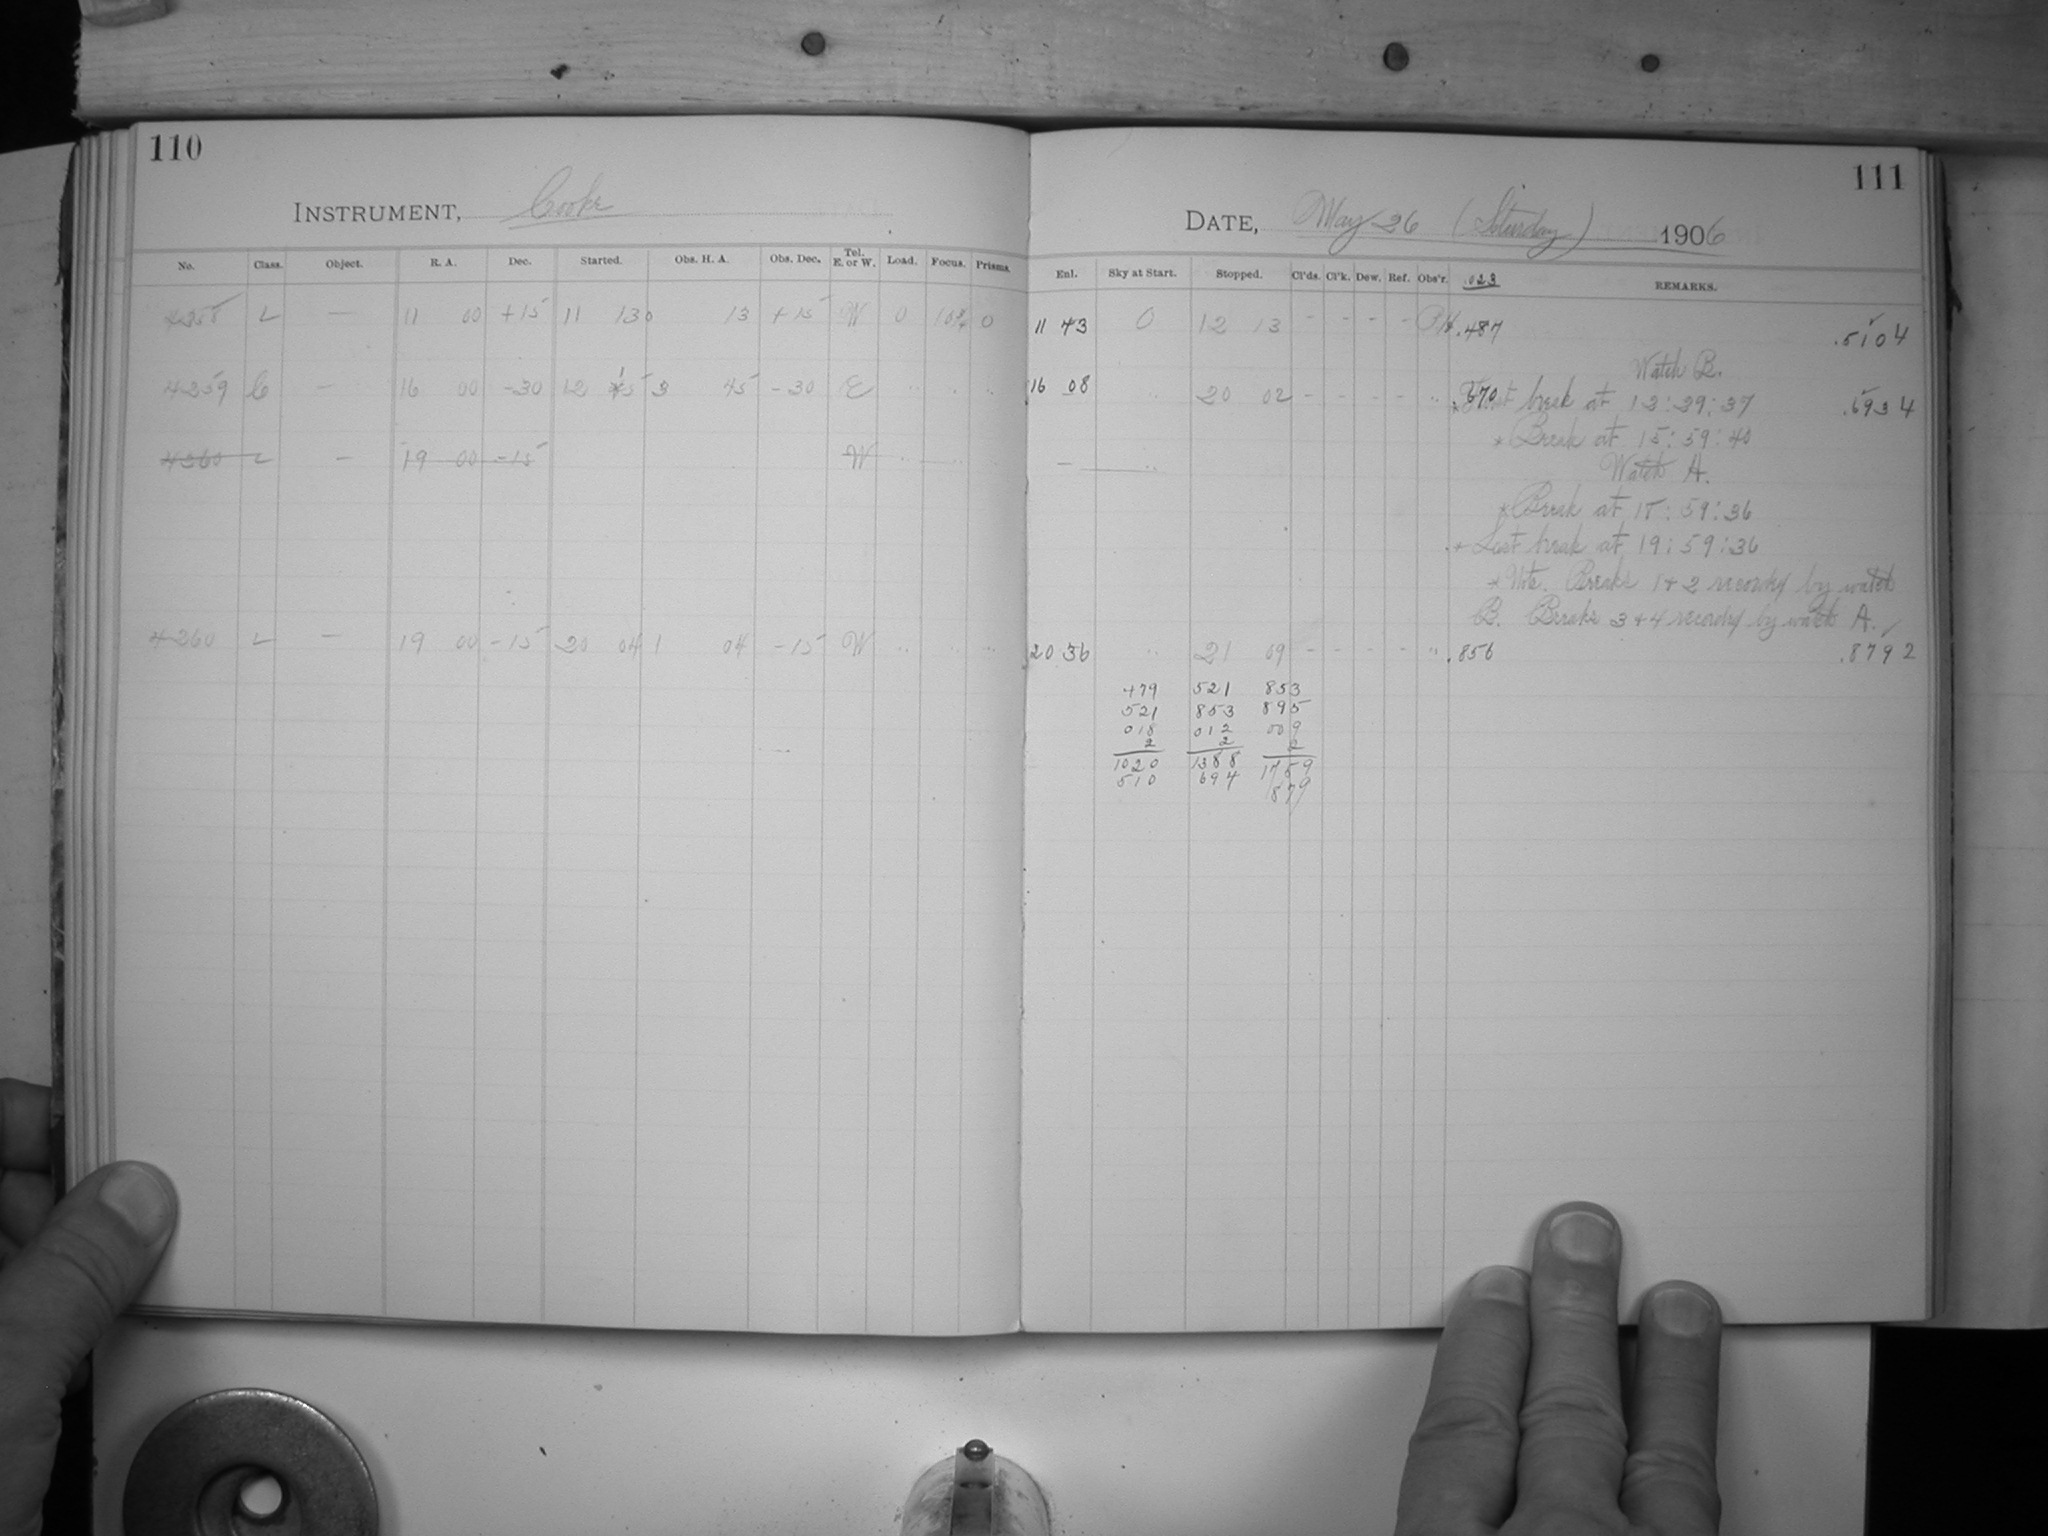 110
INSTRUMENT, Cooke
No. Class. Object. R. A. Dec. Started. Obs. H. A. Obs. Dec. Tel. E. or W. Load. Focus. Prisms.
4258 L — 11 00 +15 11 13 0 13 +15 W 0 10¾ 0
4259 C — 16 00 -30 12 15 3 45 -30 E " " "
4260 L — 19 00 -15 W
4260 L — 19 00 -15 20 04 1 04 -15 W " " "
111
DATE, May 26 (Saturday) 1906
Enl. Sky at Start. Stopped. Cl'ds. Cl'k. Dew. Ref. Obs'r. .023 REMARKS.
11 43 0 12 13 - - - - .487 .5104
Watch B.
16 08 " 20 02 - - - - " .670 break at 12:29:37 .6934
* Break at 15:59:40
Watch A.
* Break at 15:59:36
* Last break at 19:59:36
* Note. Breaks 1+2 recorded by watch
B. Breaks 3+4 recorded by watch A.
20 36 " 21 09 - - - - " .856 .8792
479 521 853
521 853 895
018 012 009
2 2 2
1020 1388 1759
510 694 879